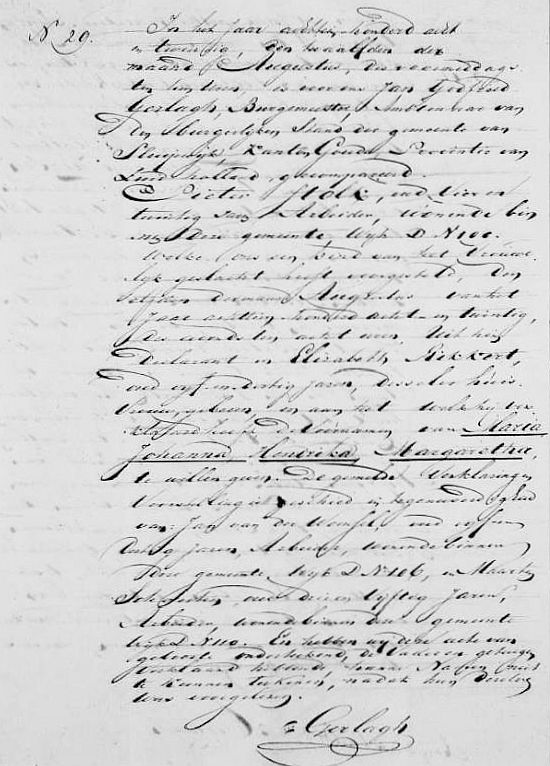 N° 29.
In het Jaar achttien honderd acht
en twintig, den twaalfden der
maand Augustus, des voormiddags
ten tien uren, is voor ons Jan Godfried
Gerlagh, Burgemeester, Ambtenaar van
den Burgerlijken Stand der gemeente van
Sluipwijk Kanton Gouda Provintie van
Zuid holland, gecompareerd
Pieter Stolk, oud vier en
twintig Jaar Arbeider, wonende bin
nen deze gemeente Wijk D N° 106.
Welke ons een kind van het Vrouwe
lijk geslacht heeft voorgesteld, den
elfden der maand Augustus van het
Jaar achttien honderd acht en twintig,
des avonds ten acht uren, Uit hem
Declarant en Elizabeth Rekkert,
oud vijf en dertig jaren, desselvs huis
Vrouw, geboren, en aan het welk hij ver
klaard heeft de Voornamen van Maria
Johanna, Hendrika, Margaretha,
te willen geven. De gemelde Verklaring en
Voorstelling is geschied in tegenwoordigheid
van: Jan van der
dertig jaren, Arbeider, wonende binnen
deze gemeente Wijk D N° 106, en Maarten
oud drie en vijftig Jaren,
Arbeider, wonende binnen deze gemeente
wijk D N° 110. En hebben wij deze acte
geteekend, de getuigen
verklaard hebbende hunne Namen niet
te kunnen teekenen, nadat hun dezelve
was voorgelezen.
Gerlagh